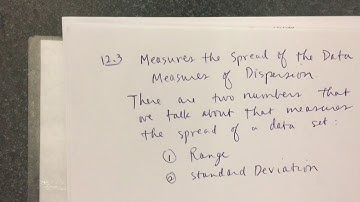 12.3 Measures the Spread of the Data
Measures of Dispersion.
There are two numbers that
we talk about that measures
the spread of a data set:
① Range
② Standard Deviation